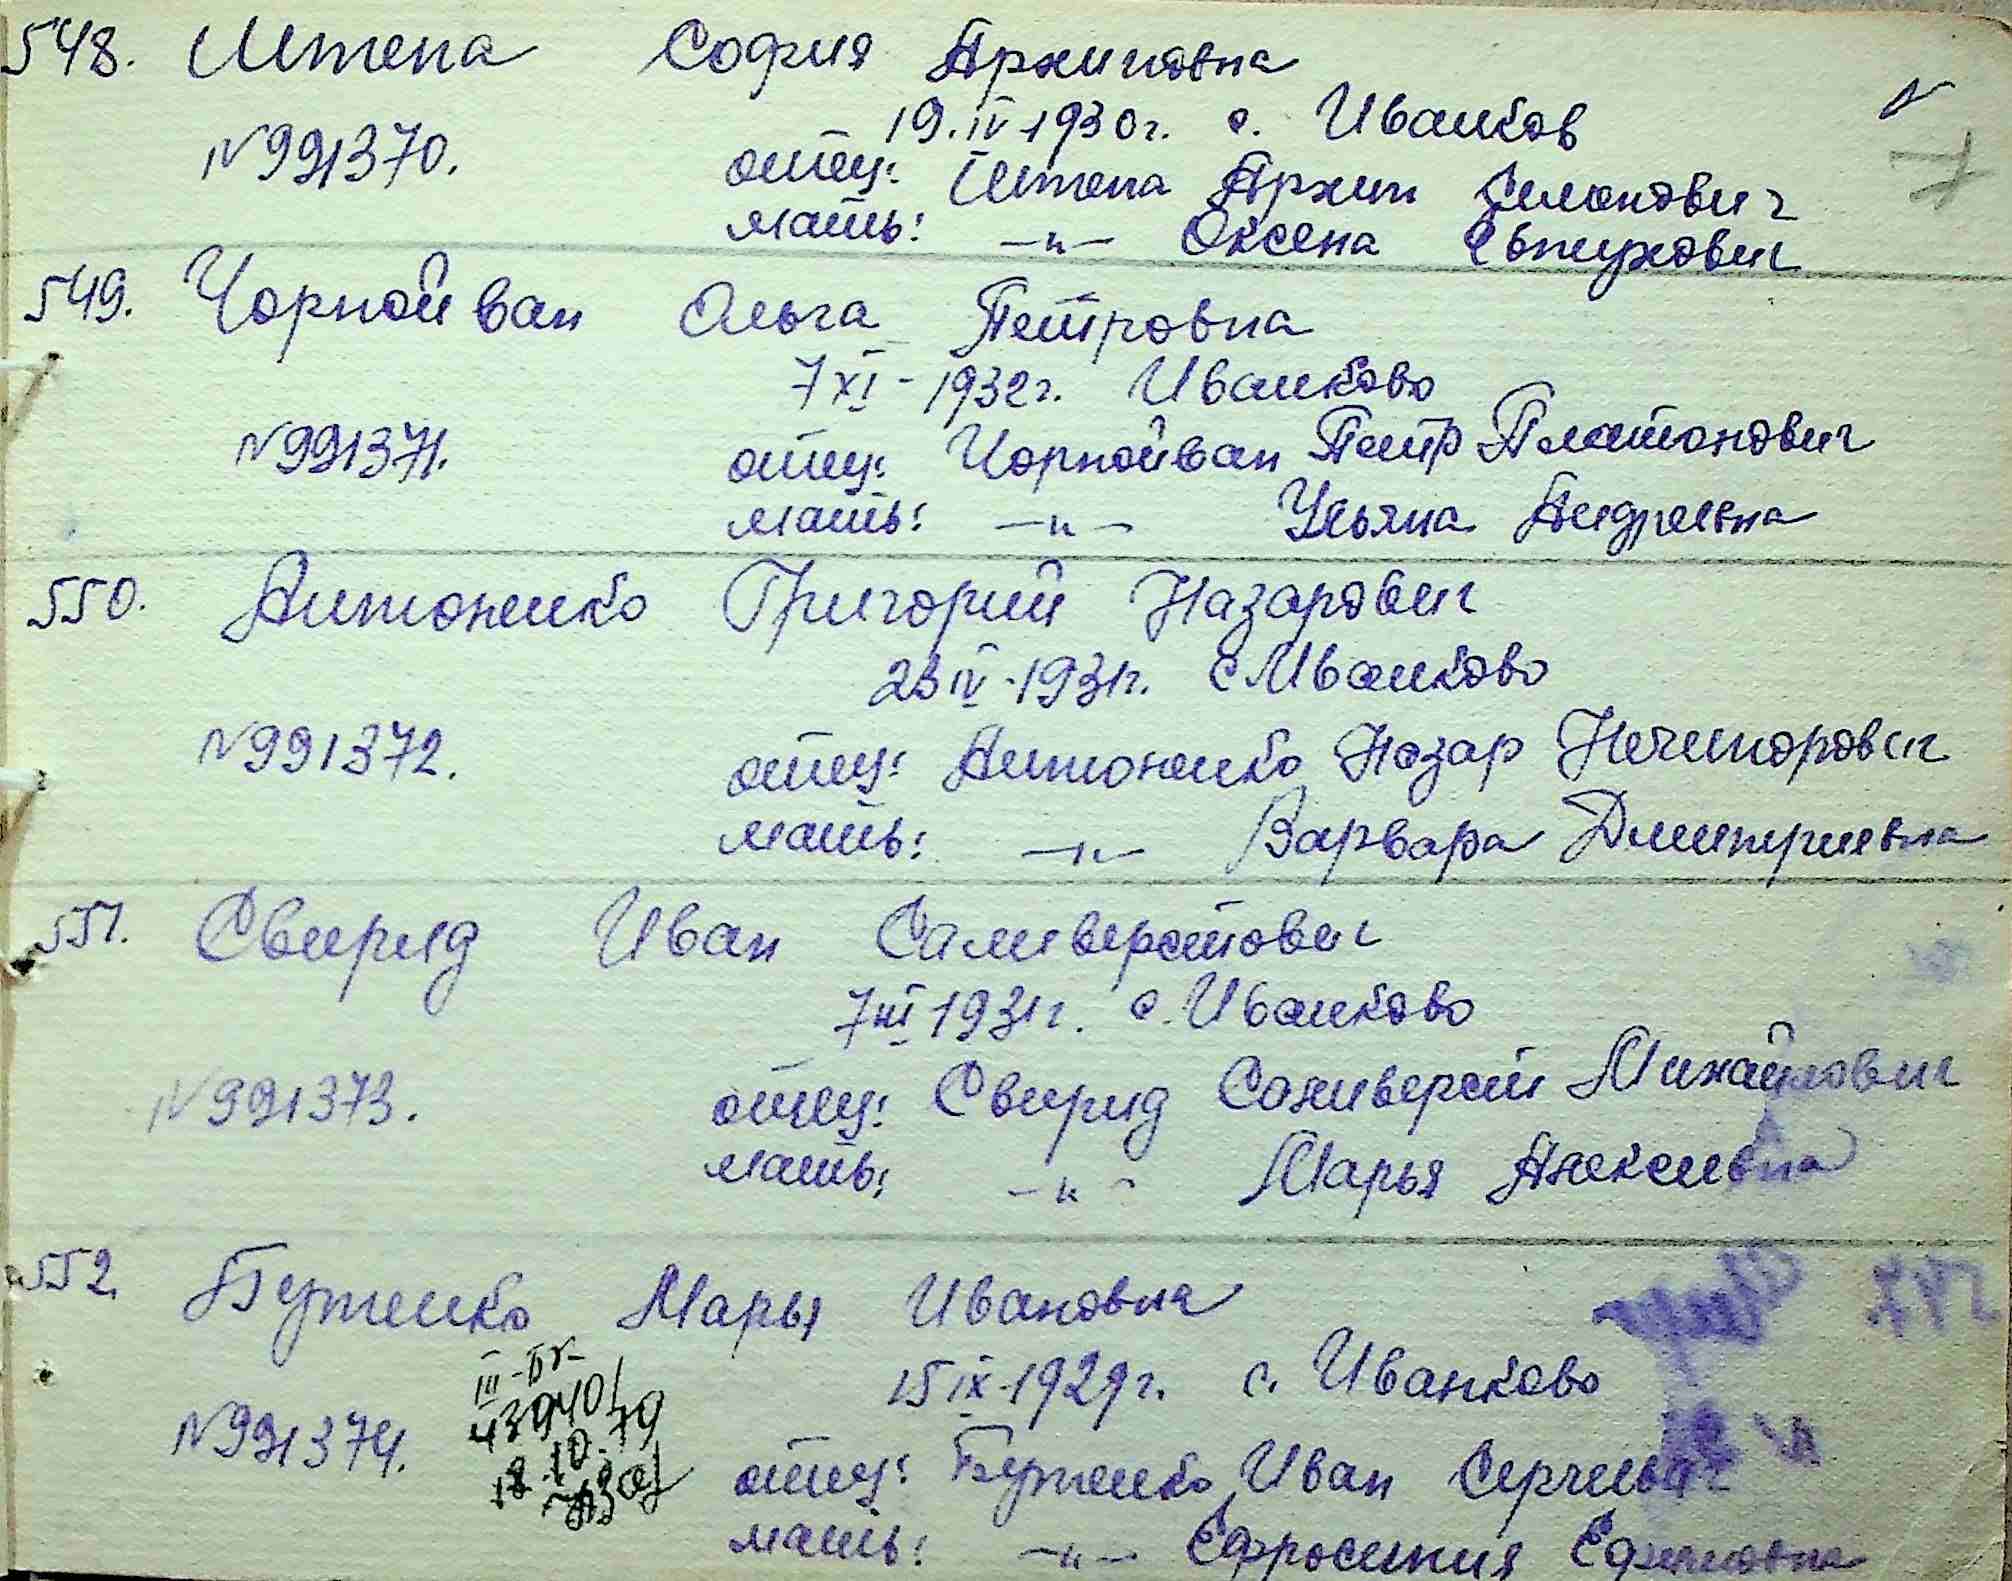 548. Штепа София Архиповна
19.IV-1930г. с. Иванков
N991370.
отец: Штепа Архип Симонович
мать: —"— Оксена Евтухович
549. Чорнойван Ольга Петровна
7 XI - 1932г. Иванково
N991371.
отец: Чорнойван Петр Платонович
мать: —"— Ульяна Андреевна
550. Антоненко Григорий Назарович
23 IV-1931г. с Иванково
N991372.
отец: Антоненко Назар Нечипорович
мать: —"— Варвара Дмитриевна
551. Свирид Иван Саливерстович
7 III 1931г. с. Иванково
N991373.
отец: Свирид Саливерст Михайлович
мать: —"— Марья Алексеевна
552. Бутенко Марья Ивановна
15 IX-1929г. с. Иванково
N991374.
III-БК
439404
18.10.79
отец: Бутенко Иван Сергеевич
мать: —"— Ефросиния Ефимовна